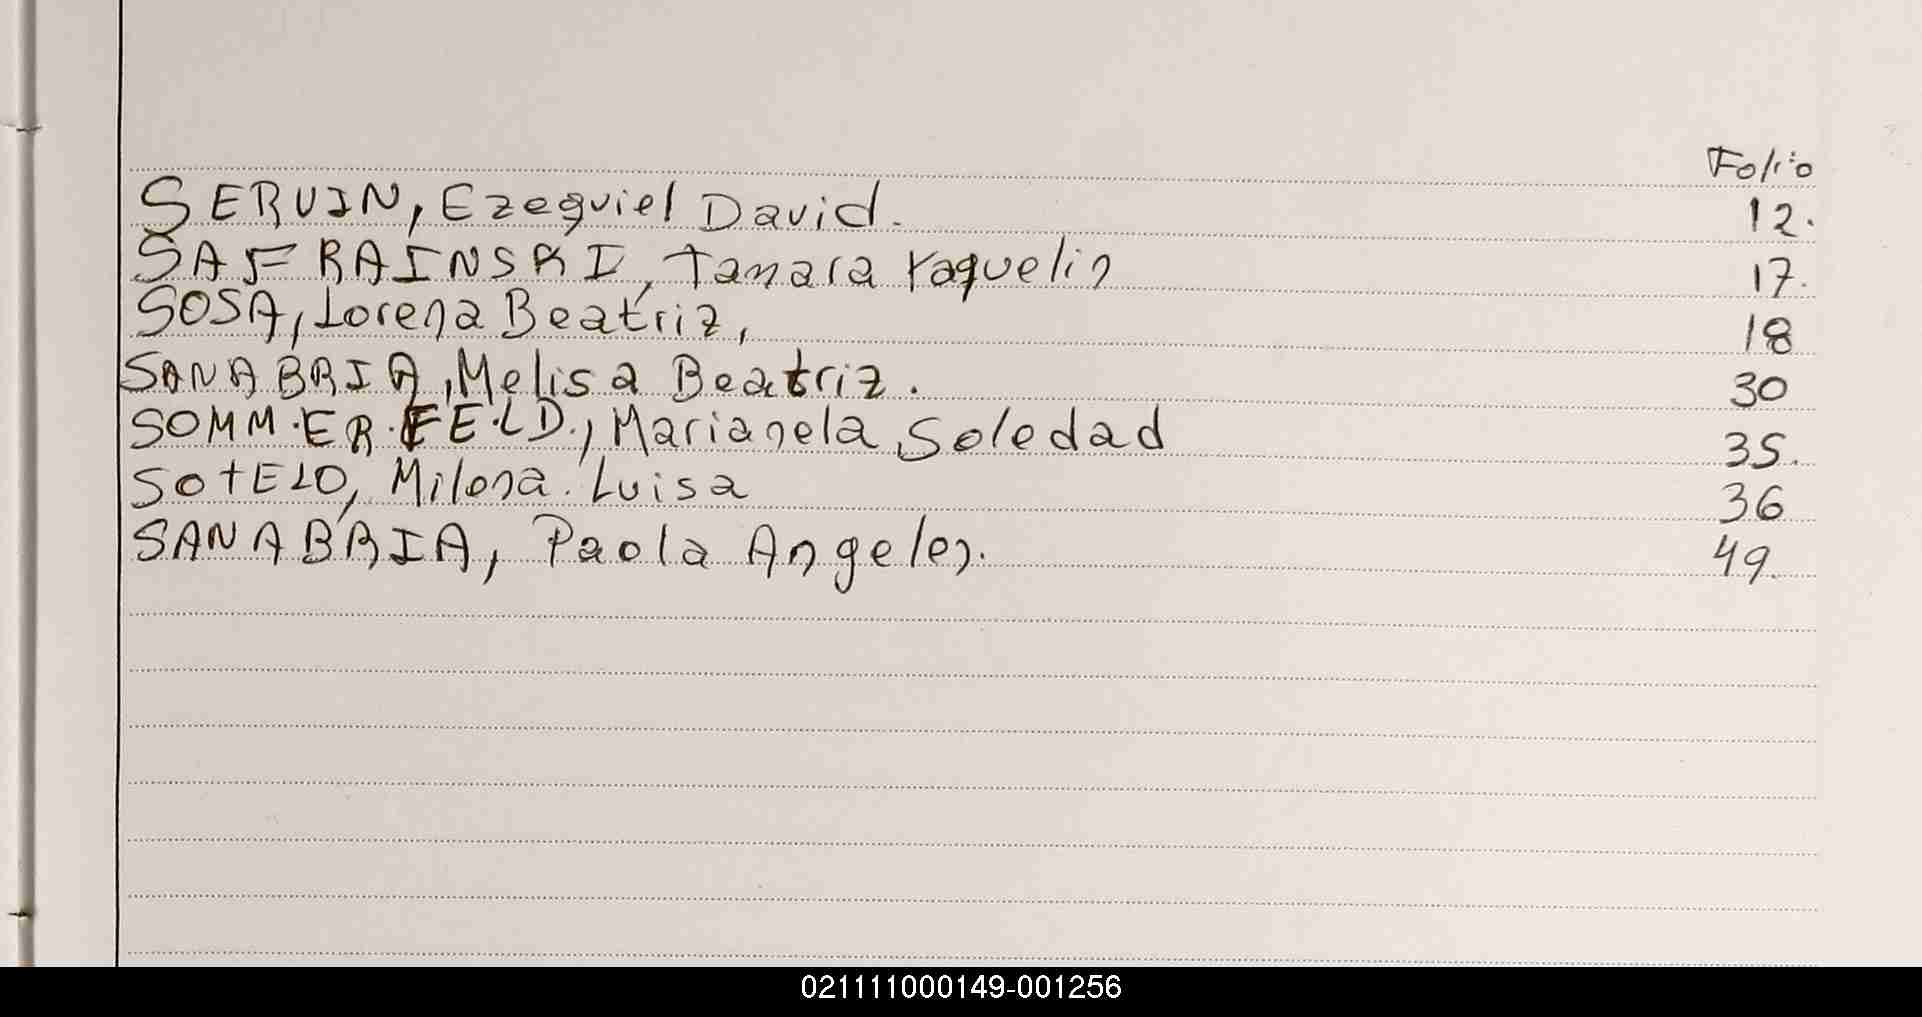 Folio
SERVIN, Ezequiel David. 12.
SAFRAINSKI, Tamara Yaquelin 17.
SOSA, Lorena Beatriz, 18
SANABRIA, Melisa Beatriz. 30
SOMMERFELD, Marianela Soledad 35.
SOTELO, Milena Luisa 36
SANABRIA, Paola Angeles. 49.
021111000149-001256